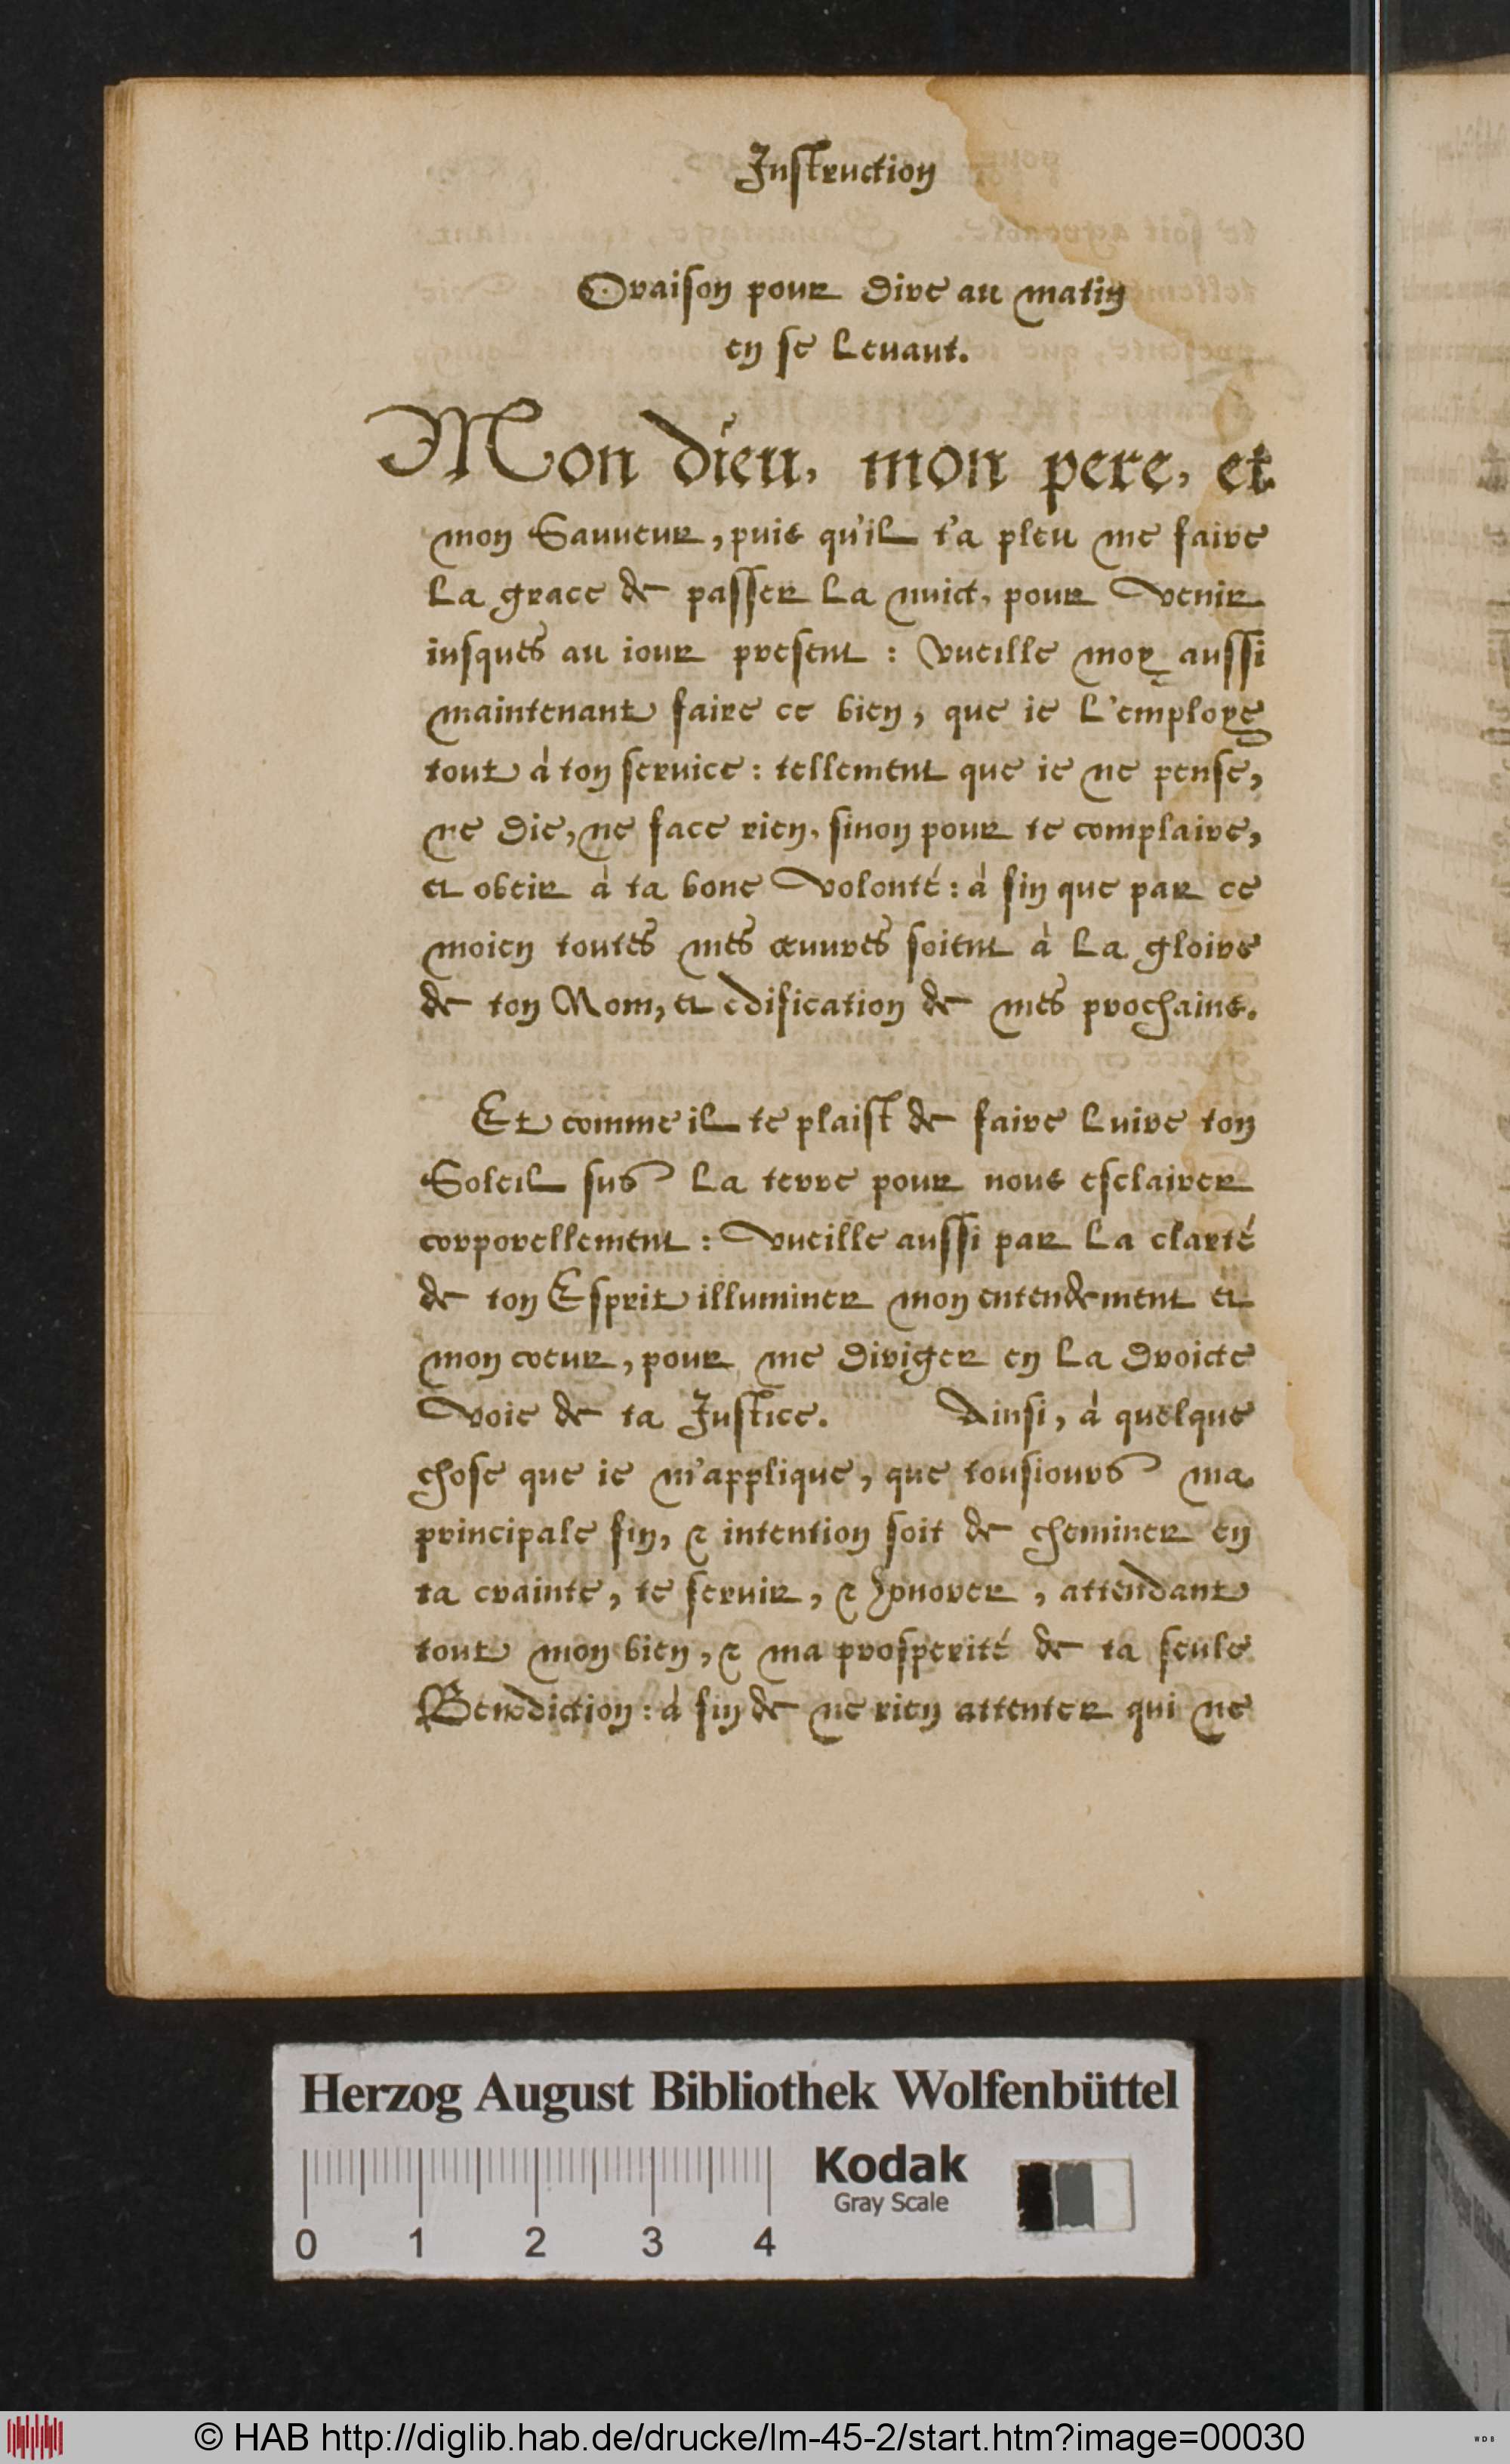 Instruction
Oraison pour dire au matin
en se levant.
Mon dieu, mon pere, et
mon Sauueur, puis qu'il t'a pleu me faire
la grace de passer la nuict, pour venir
iusques au iour present : vueille moy aussi
maintenant faire ce bien, que ie l'employe
tout à ton seruice : tellement que ie ne pense,
ne die, ne face rien, sinon pour te complaire,
et obeir à ta bone volonté : à fin que par ce
moien toutes mes œuures soient à la gloire
de ton Nom, et edification de mes prochains.
Et comme il te plaist de faire luire ton
Soleil sus la terre pour nous esclairer
corporellement : vueille aussi par la clarté
de ton Esprit illuminer mon entendement et
mon coeur, pour me diriger en la droicte
voie de ta Justice. Ainsi, à quelque
chose que ie m'applique, que tousiours ma
principale fin, & intention soit de cheminer en
ta crainte, te seruir, & honorer, attendant
tout mon bien, & ma prosperité de ta seule
Benediction : à fin de ne rien attenter qui ne
Herzog August Bibliothek Wolfenbüttel
Kodak
Gray Scale
0 1 2 3 4
© HAB http://diglib.hab.de/drucke/lm-45-2/start.htm?image=00030